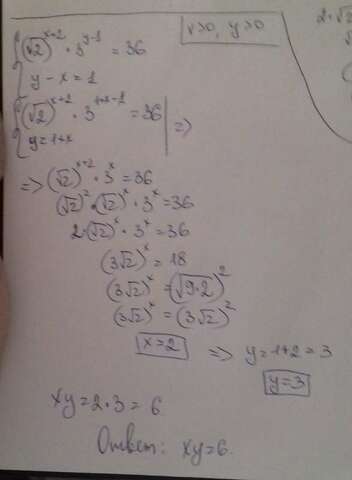 x>0, y>0
{ (√2)^(x+2) · 3^(y-1) = 36
y - x = 1
{ (√2)^(x+2) · 3^(1+x-1) = 36 | =>
y = 1+x
=> (√2)^(x+2) · 3^x = 36
(√2)^2 · (√2)^x · 3^x = 36
2 · (√2)^x · 3^x = 36
(3√2)^x = 18
(3√2)^x = (√9·2)^2
(3√2)^x = (3√2)^2
x=2 => y = 1+2 = 3
y=3
xy = 2·3 = 6
Ответ: xy=6.